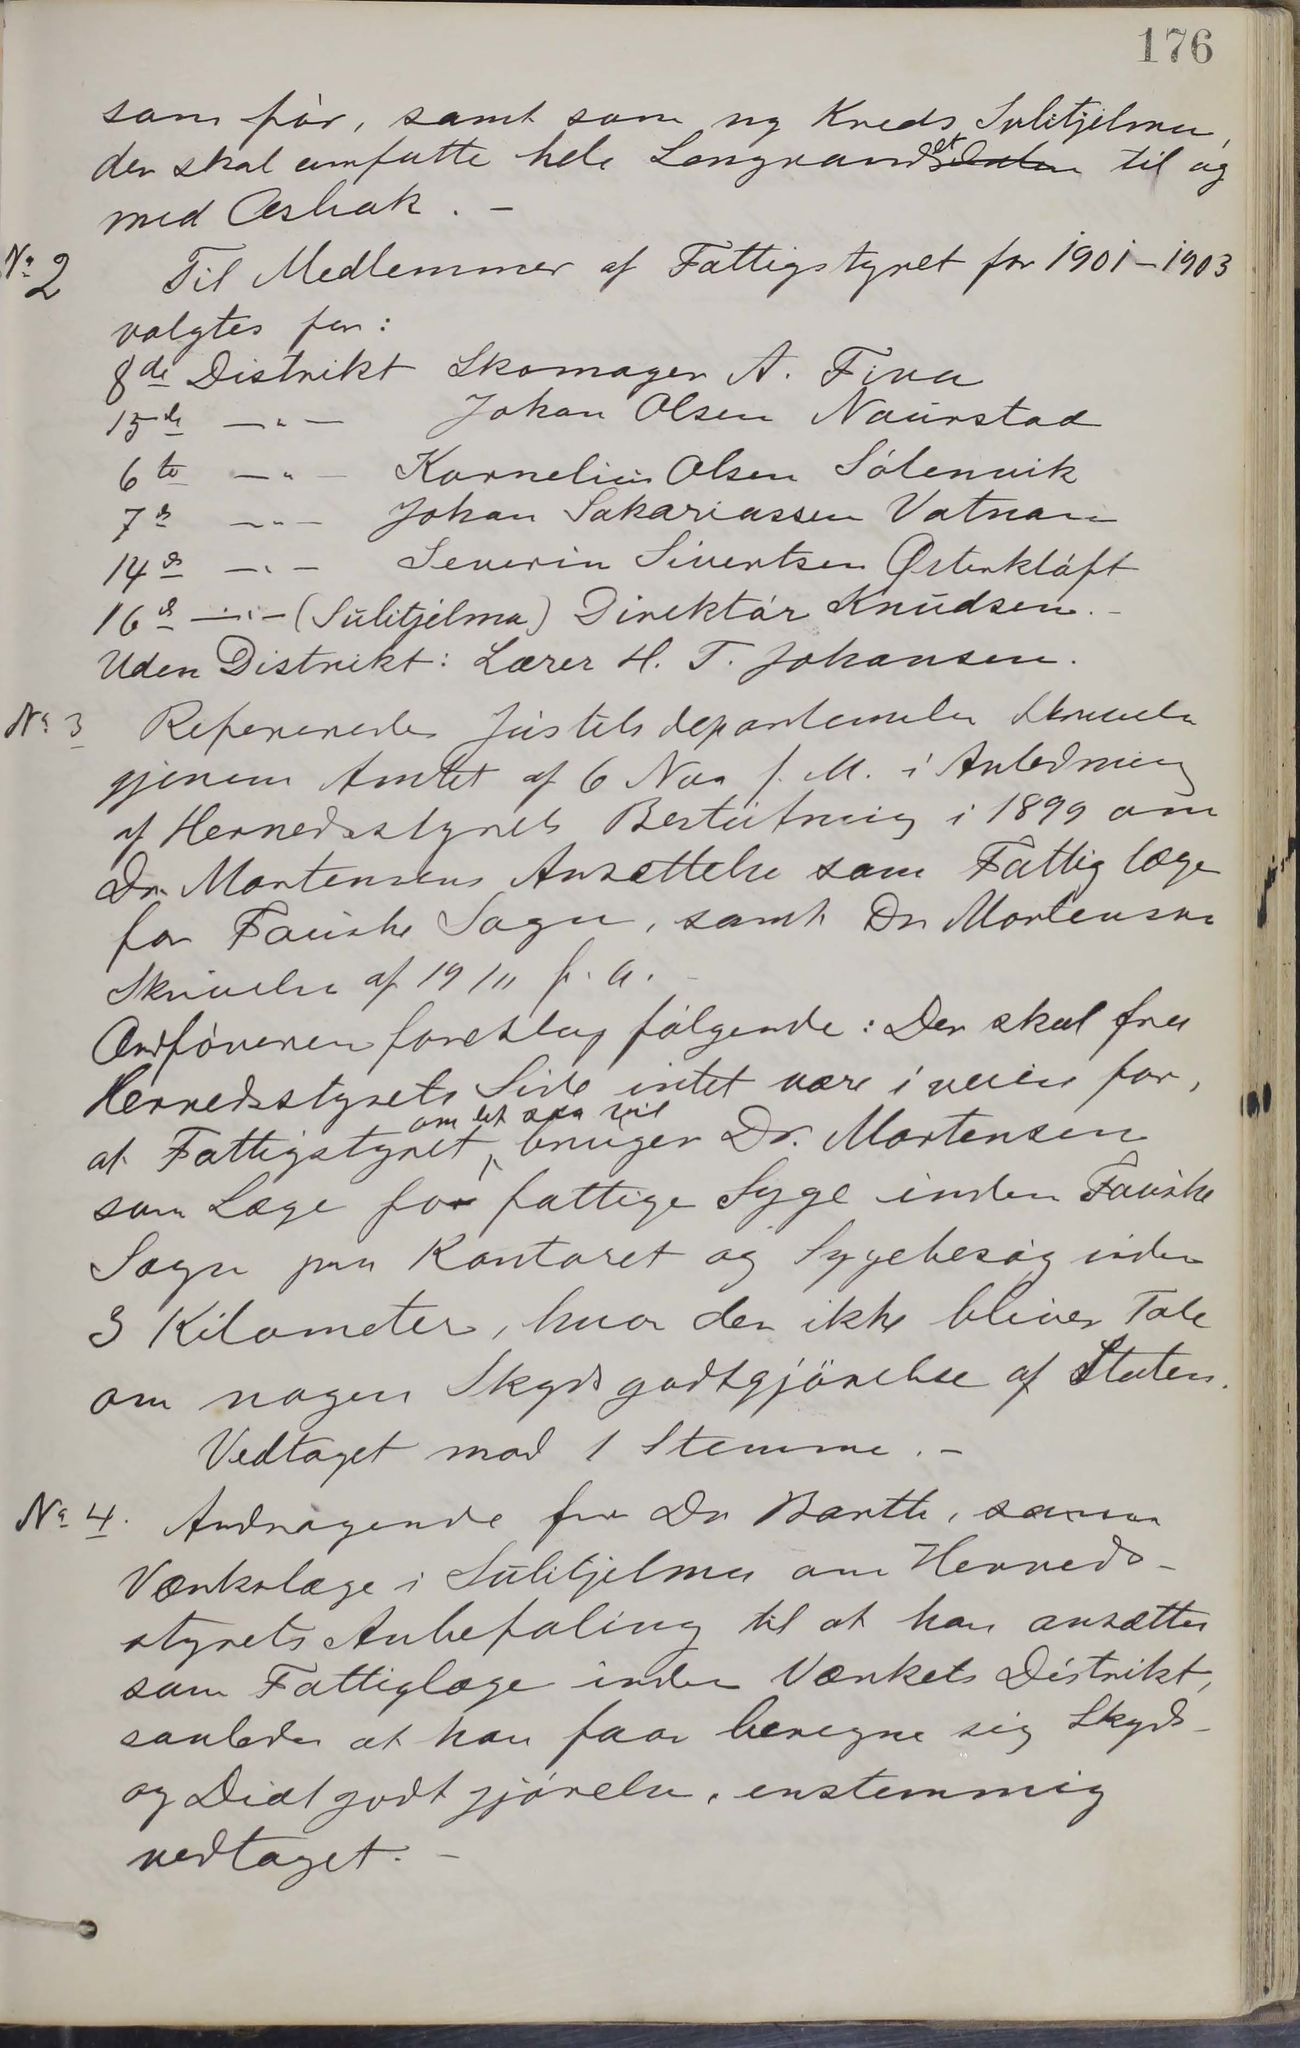 176
som før, samt som ny Kreds Sulitjelma,
der skal omfatte hele Langvandet til og
med Øshak. –
No 2 Til Medlemmer af Fattigstyret for 1901–1903
valgtes for:
8de Distrikt Skomager A. Finn
15de —"— Johan Olsen Naurstad
6te —"— Kornelius Olsen Sølenvik
7e —"— Johan Sakariassen Vatnan
14e —"— Severin Sivertsen Østerkløft
16e —"— (Sulitjelma) Direktør Knudsen. –
Uden Distrikt: Lærer H. T. Johansen.
No 3 Refereredes Justitsdepartemetes Skrivelse
gjenem Amtet af 6 Nov f. M. i Anledning
af Herredsstyrets Beslutning i 1899 om
Dr. Mortensens Ansættelse som Fattig læge
for Fauske Sogn, samt Dr Mortensens
Skrivelse af 19/11 f. A. –
Ordføreren foreslog følgende: Der skal fra
Herredsstyrets Side intet være i veien for,
at Fattigstyret, om det saa vil bruger Dr. Mortensen
som Læge for fattige Syge inden Fauske
Sogn paa Kontoret og Sygebesøg inden
3 Kilometer, hvor der ikke bliver Tale
om nogen Skydsgodtgjørelse af Staten.
Vedtaget mod 1 Stemme. –
No 4. Andragende fra Dr Barth, som
Værkslæge i Sulitjelma om Herreds-
styrets Anbefaling til at han ansættes
som Fattiglæge inden Værkets Distrikt,
saaledes at han faar beregne sig Skyds-
og Diætgodtgjørelse. enstemmig
vedtaget. –